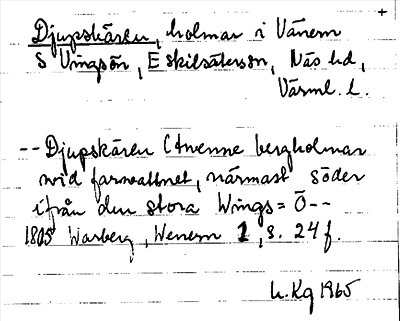 +
Djupskären, holmar i Vänern
S Vingsön, Eskilsäterssn, Näs hd,
Värml. l.
-- Djupskären (twenne bergholmar
wid farwattnet, närmast söder
ifrån den stora Wings=Ö --
1805 Warberg, Wenern 1, s. 24 f.
1965